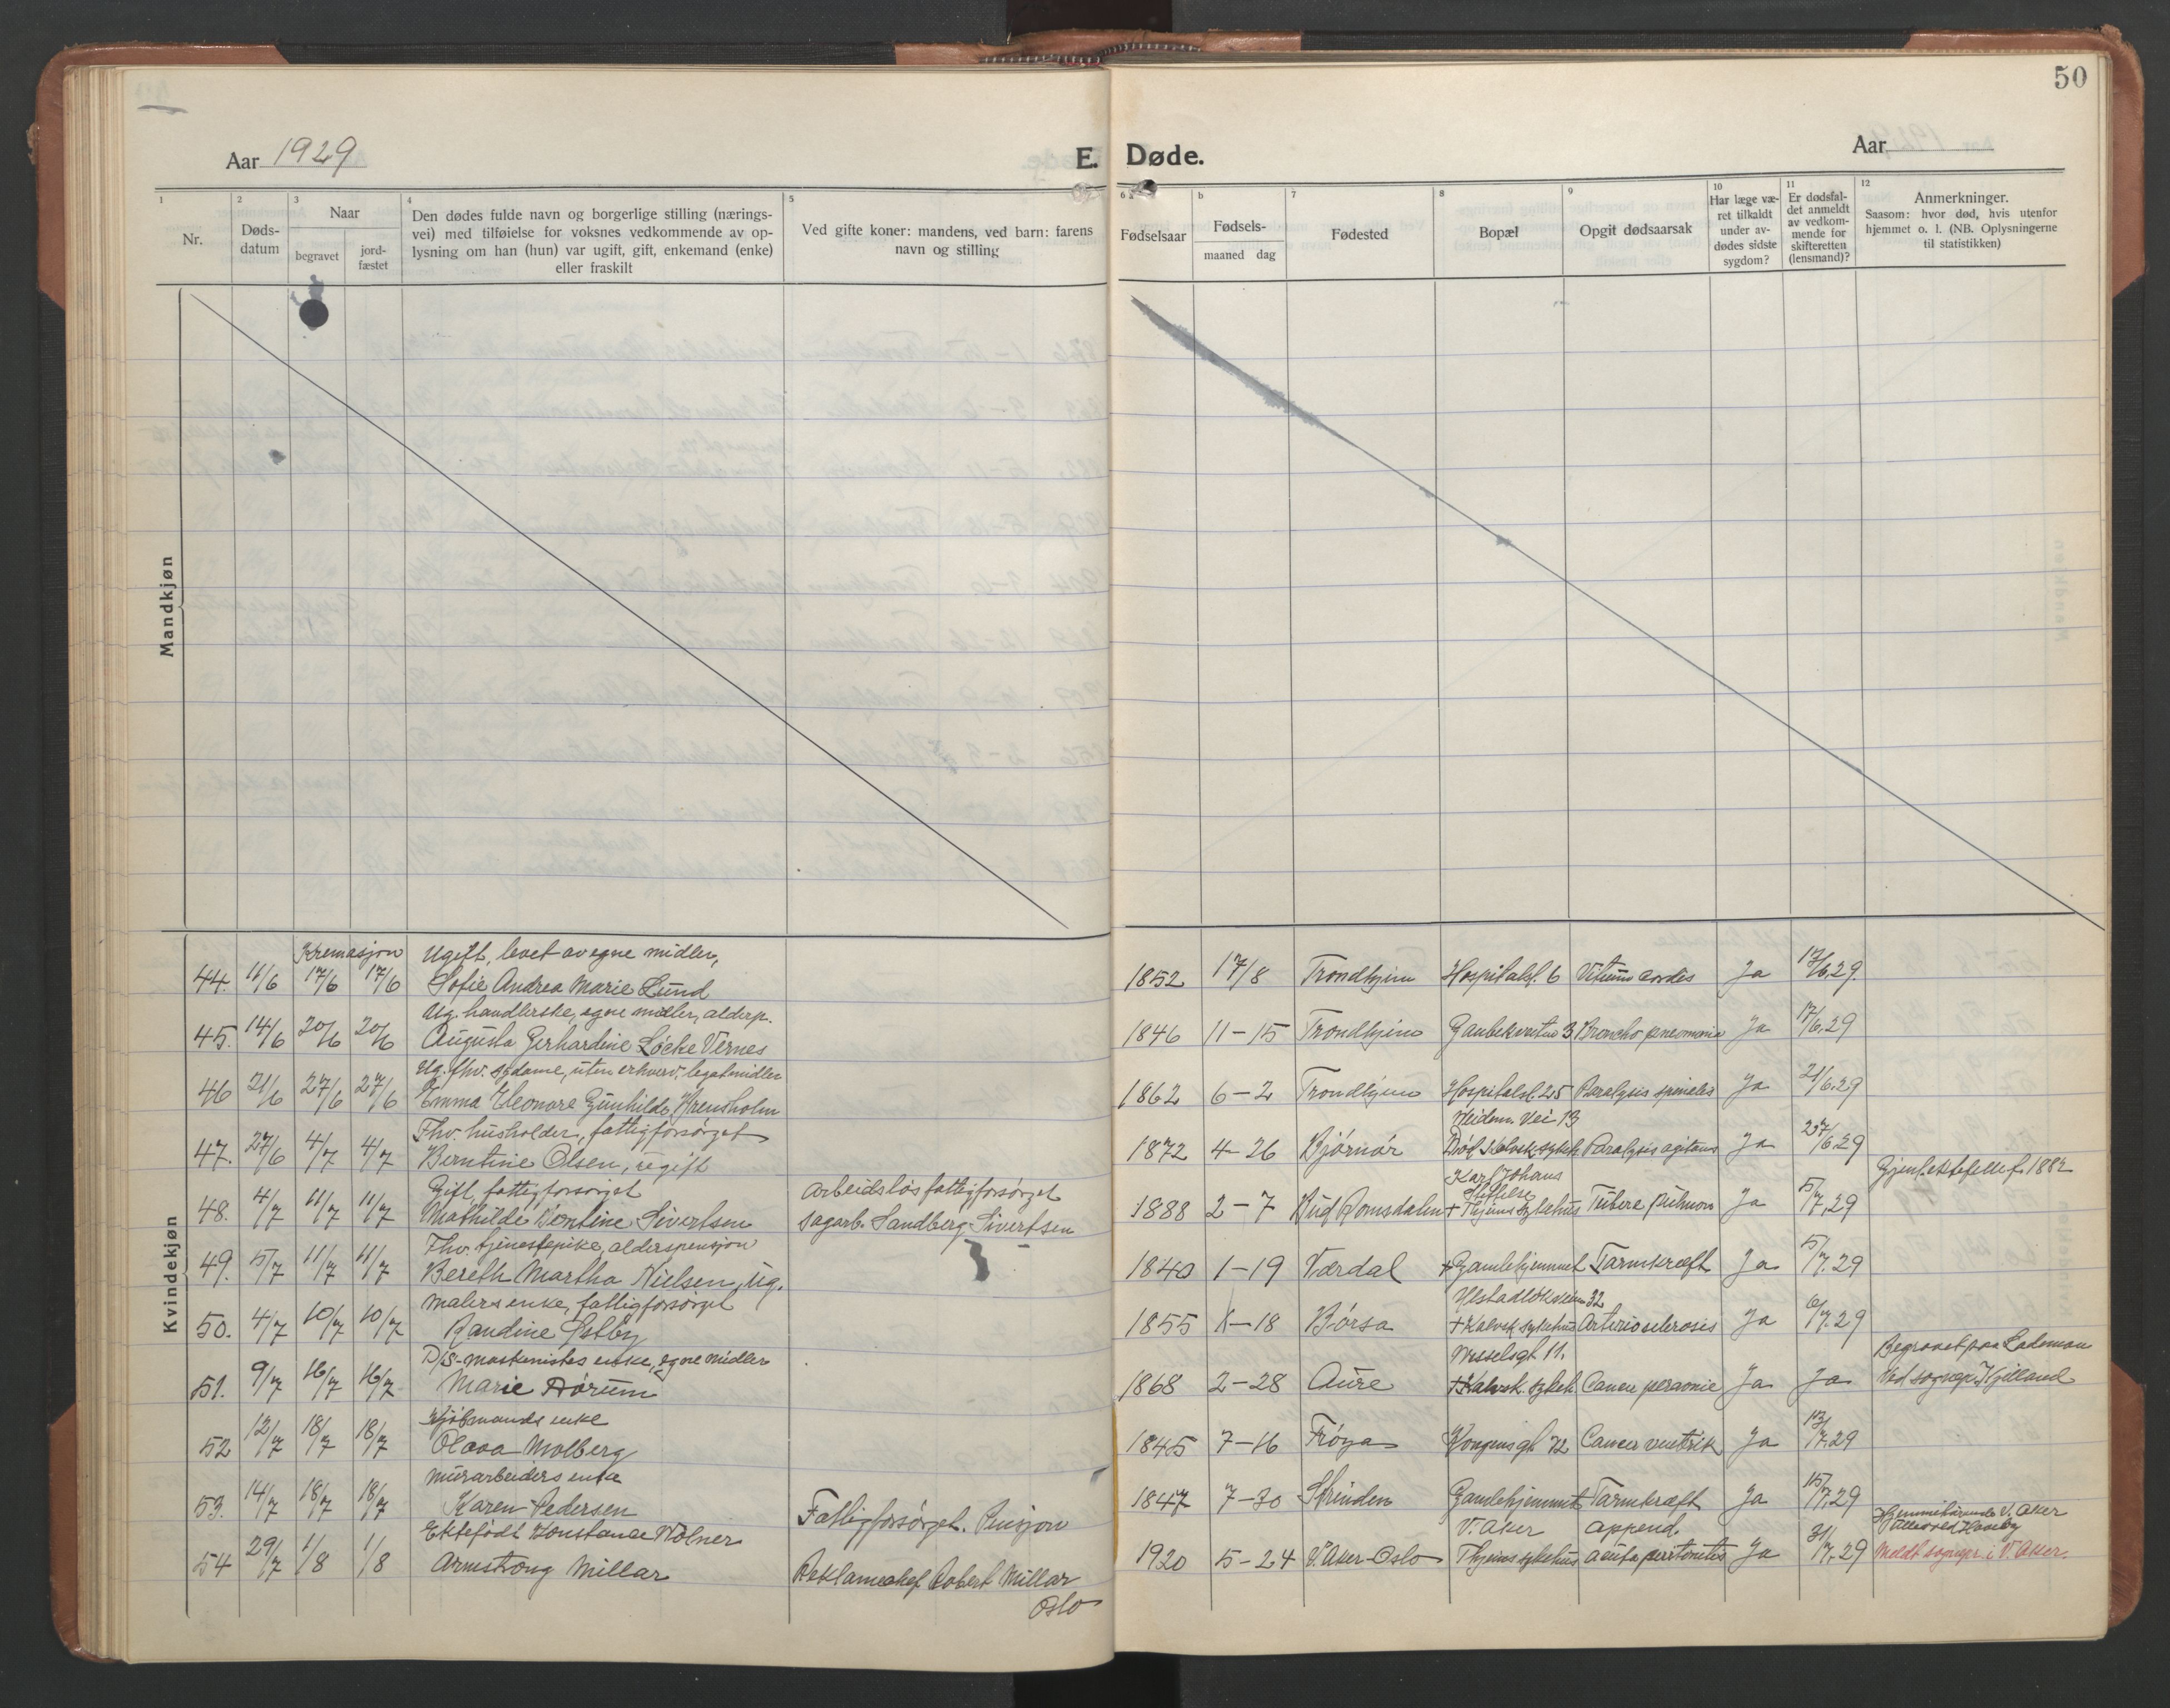 50
Aar 1929
E. Døde.
Aar
1 2 3 4 5 6 a b 7 8 9 10 11 12
Nr.
Døds-
datum
Naar
begravet
jord-
fæstet
Den dødes fulde navn og borgerlige stilling (nærings-
vei) med tilføielse for voksnes vedkommende av op-
lysning om han (hun) var ugift, gift, enkemand (enke)
eller fraskilt
Ved gifte koner: mandens, ved barn: farens
navn og stilling
Fødselsaar
Fødsels-
maaned dag
Fødested
Bopæl
Opgit dødsaarsak
Har læge væ-
ret tilkaldt
under av-
dødes sidste
sygdom?
Er dødsfal-
det anmeldt
av vedkom-
mende for
skifteretten
(lensmand)?
Anmerkninger.
Saasom: hvor død, hvis utenfor
hjemmet o. l. (NB. Oplysningerne
til statistikken)
Mandkjøn
Kvindekjøn
Kremasjon Ugift, levet av egne midler,
44. 11/6 17/6 17/6 Sofie Andrea Marie Lund 1852 17/8 Trondhjem Hospitalsl. 6 Vitium cordis Ja 17/6.29.
Ug. handlerske, egne midler, alderp.
45. 14/6 20/6 20/6 Augusta Gerhardine Løcke Vernes 1846 11-15 Trondhjem Gaubekveita 3 Broncho pneomonie Ja 17/6.29
Ug. fhv. sydame, uten erhverv, legatmidler
46 21/6 27/6 27/6 Emma Eleonore Gunhilde Hrensholm 1862 6-2 Trondhjem Hospitalsl. 25 Paralysis spinales Ja 21/6.29
Fhv. husholder, fattigforsørget Weidem. Vei 13
47. 27/6 4/7 4/7 Berntine Olsen, ugift 1872 4-26 Bjørnør Død Kalvsk. sykeh. Paralysis agitans Ja 27/6.29
Gift, fattigforsørget Arbeidsløs fattigforsørget Karl Johans Stiftelse Gjenl. ektefelle f. 1882
48. 4/7 11/7 11/7 Mathilde Bentine Sivertsen sagarb. Sandberg Sivertsen 1888 2-7 Bud Romsdalen + Thjems sykehus Tuberc. pulmon Ja 5/7.29
Fhv. tjenestepike, alderspensjon
49. 5/7 11/7 11/7 Bereth Martha Nielsen, ug. 1840 1-19 Værdal + Gamlehjemmet Tarmkræft Ja 5/7.29
Malers enke, fattigforsørget 32
50. 4/7 10/7 10/7 Randine Østby 1855 8-18 Børsa + Kalvsk. sykehus Arteriosclerosis Ja 6/7.29
D/S-maskinistes enke, egne midler Wesselsgt. 11. Begravet paa Lademoen
51. 9/7 16/7 16/7 Marie Aørum 1868 2-28 Aure + Kalvsk. sykeh. Cancer Ja Ja Ved sognepr. Kjelland
Kjøbmands enke
52 12/7 18/7 18/7 Olava Molberg 1845 7-16 Frøya Kongensgt 72 Cancer ventrik. Ja 13/7.29
Murarbeiders enke
53. 14/7 18/7 18/7 Karen Pedersen Fattigforsørget. Pensjon 1847 7-30 Strinden Gamlehjemmet Tarmkræft Ja 15/7.29
Ektefødt Konstance Wolner V. Aker append. Hjemmehørende V. Aker
54 29/7 1/8 1/8 Armstrong Millar Reklamechef Robert Millar Oslo 1920 5-24 V. Aker-Oslo Thjems sykehus acuta peritonitis Ja 31/7.29 Meldt sognepr. i V. Aker.